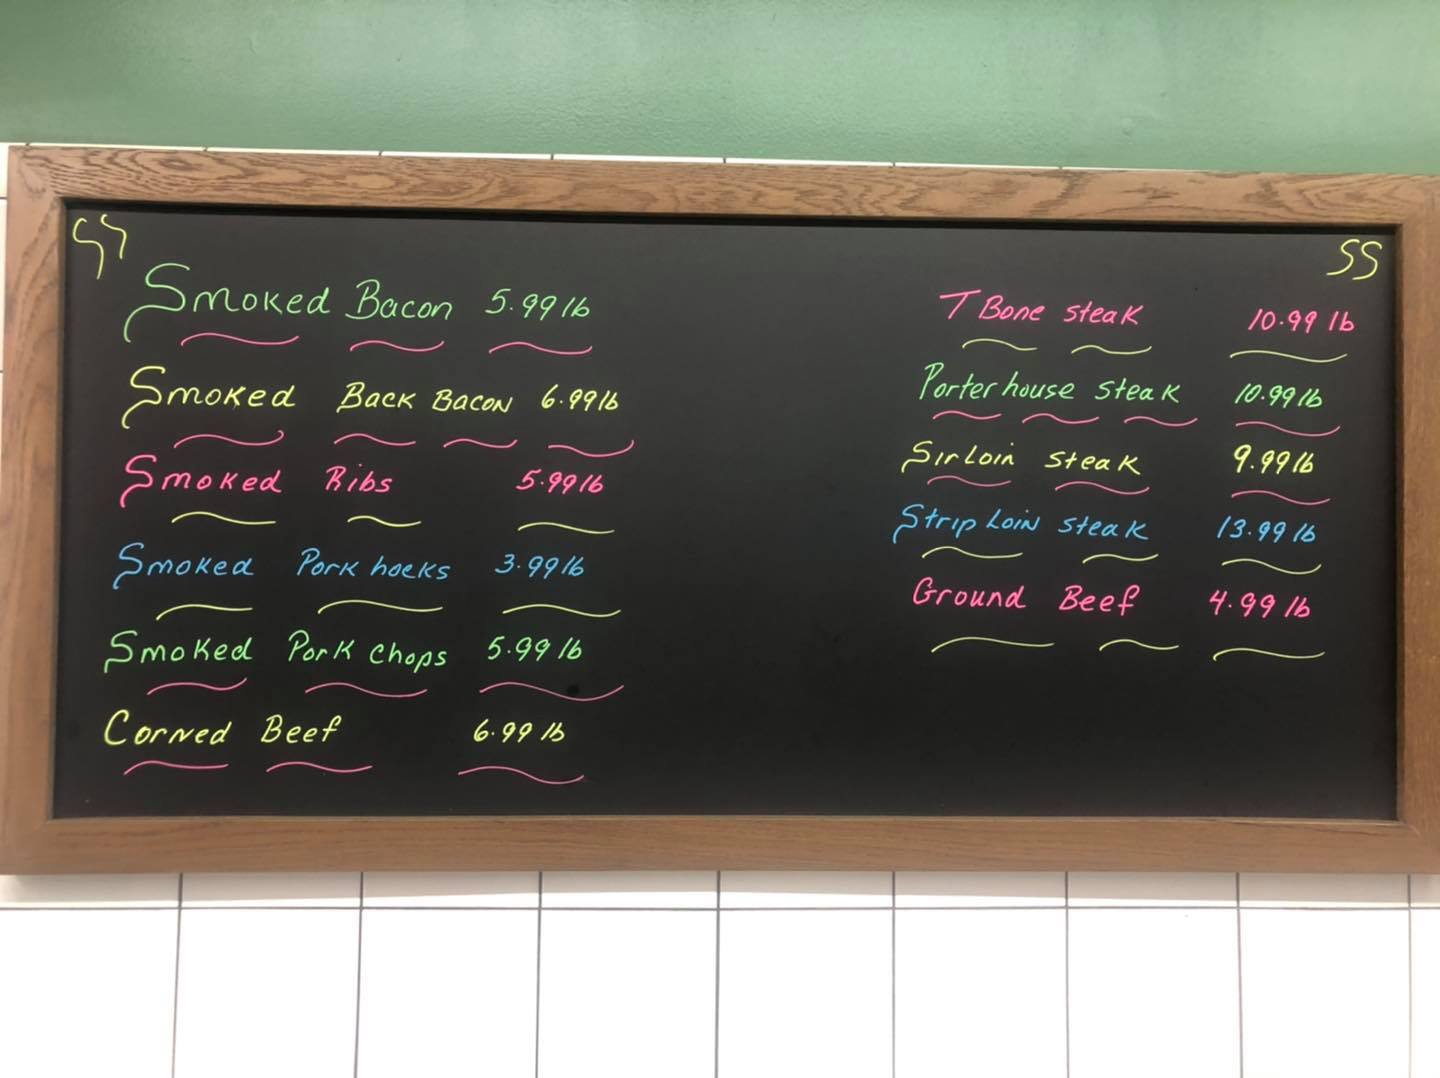 Smoked Bacon 5.99 lb
Smoked Back Bacon 6.99 lb
Smoked Ribs 5.99 lb
Smoked Pork hocks 3.99 lb
Smoked Pork chops 5.99 lb
Corned Beef 6.99 lb
T Bone steak 10.99 lb
Porterhouse steak 10.99 lb
Sirloin steak 9.99 lb
Strip Loin steak 13.99 lb
Ground Beef 4.99 lb